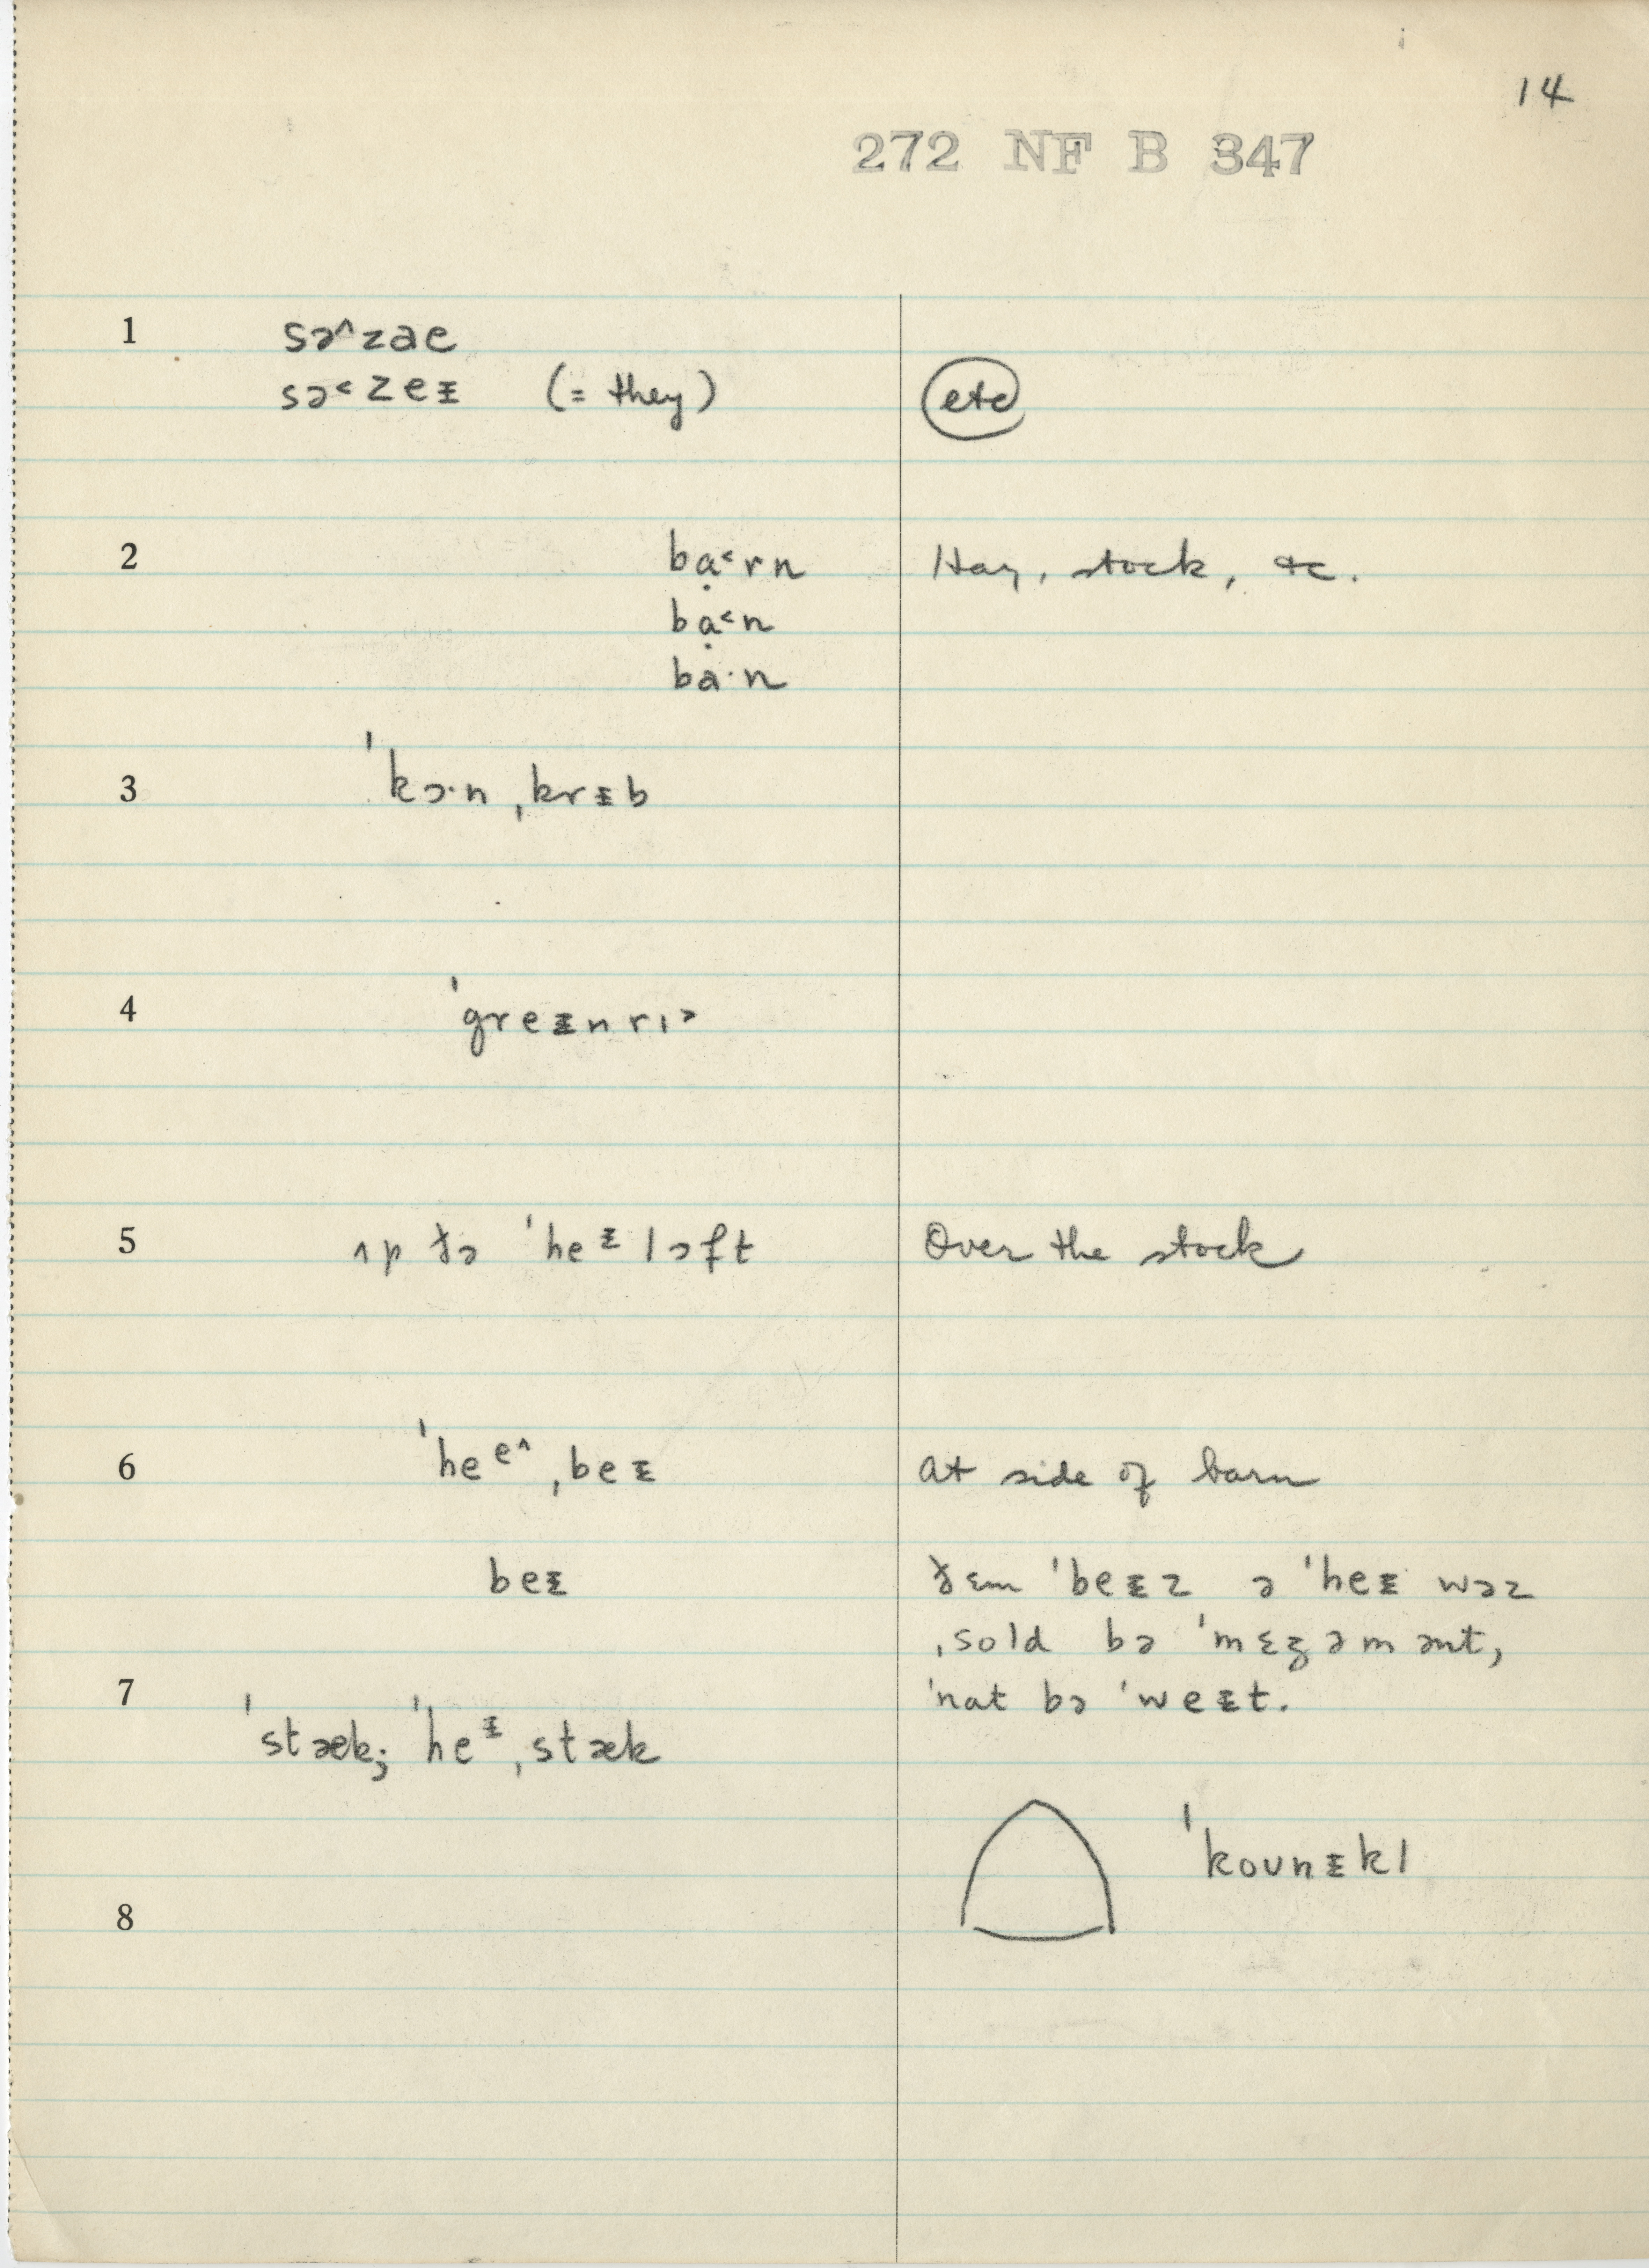 14
272 NF B 347
1 sə˄zae
sə˂zeᵻ (= they) etc
2 bạ˂rn Hay, stock, &c.
bạ˂n
ba·n
3 ˈkɔ·n ˌkrᵻb
4 ˈgreᵻnrɪ˃
5 ʌp ðə ˈheᵻlɔft Over the stock
6 ˈheᵉ˄ ˌbeᵻ at side of barn
beᵻ ðɛm ˈbeᵻz ə ˈheᵻ wəz
ˌsold bə ˈmɛʒəmənt,
7 ˈnat bə ˈweᵻt.
ˈstæk; ˈheᵻ ˌstæk
ˈkoʊnᵻkl
8